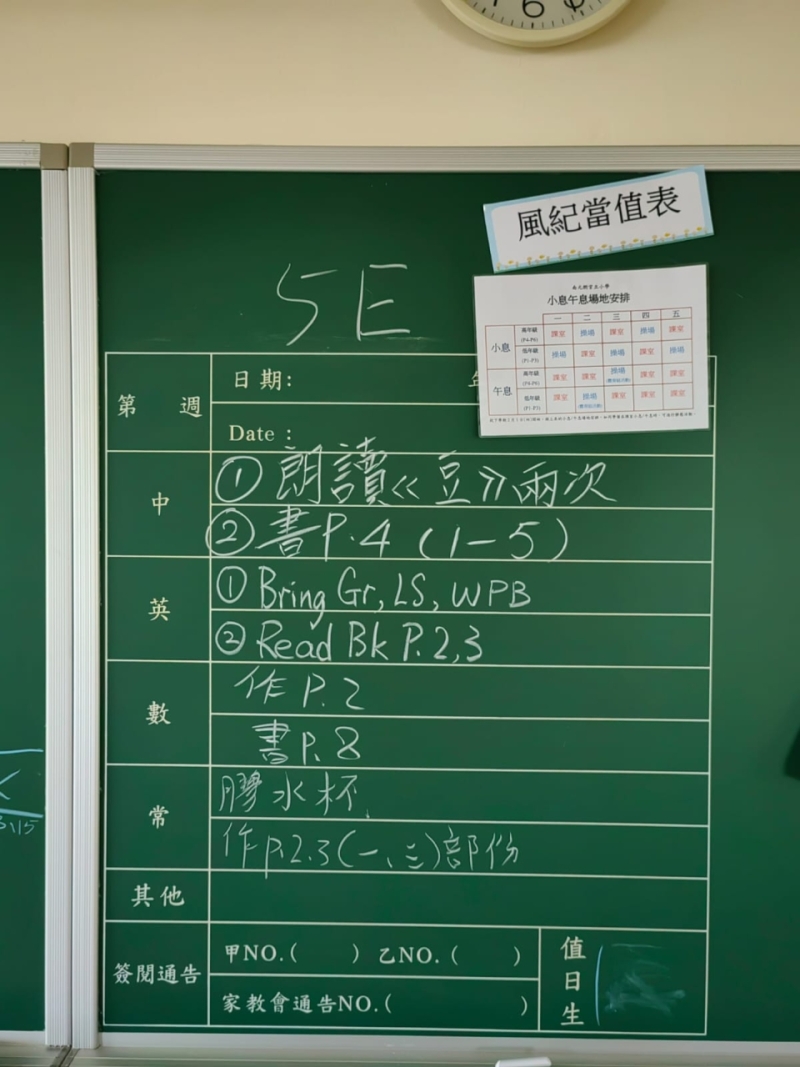 6
風紀當值表
小息午息場地安排
一 二 三 四 五
小息
高年級
(P4-P6)
課室 操場 課室 操場 課室
低年級
(P1-P3)
操場 課室 操場 課室 操場
午息
高年級
(P4-P6)
課室 課室 操場 課室 課室
低年級
(P1-P3)
課室 操場 課室 課室 課室
5E
第 週
日期:
Date :
中
① 朗讀《豆》兩次
② 書P.4 (1-5)
英
① Bring Gr, LS, WPB
② Read Bk P.2,3
數
作 P.2
書P.8
常
膠水杯
作p.2.3(一、三)部份
其他
簽閱通告
甲NO.( ) 乙NO.( )
家教會通告NO.( )
值日生